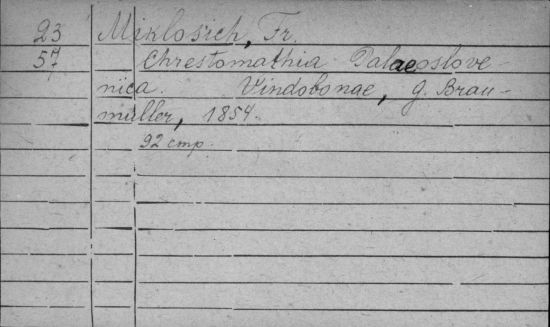 23 Miklosich, Fr.
57 Chrestomathia Palaeoslove-
nica. Vindobonae, G. Brau-
müller, 1854.
92 стр.